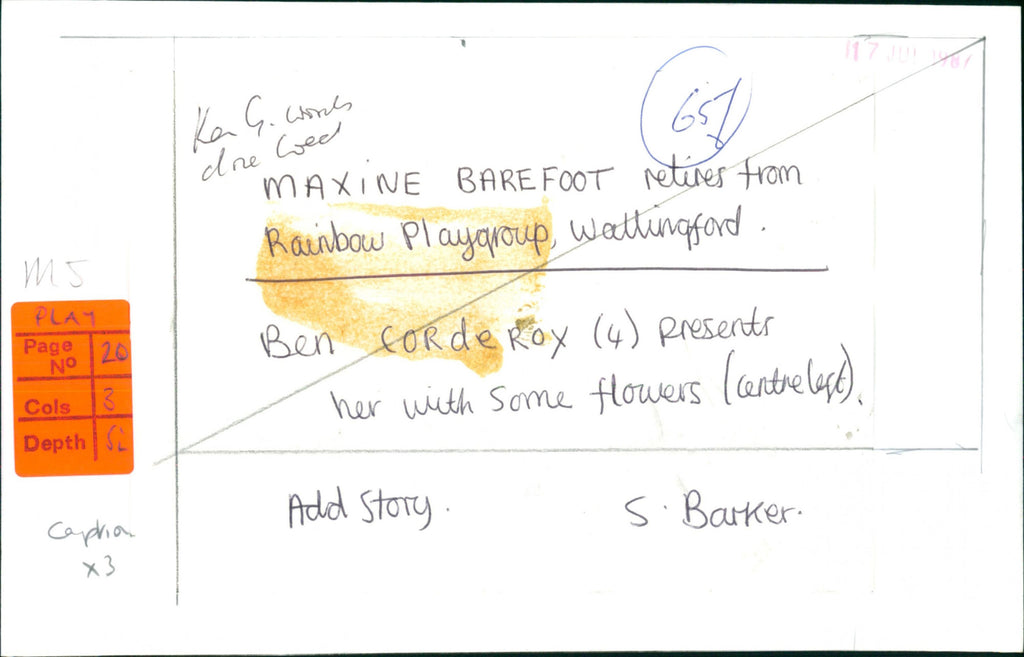 17 JUL 1987
657
Ken G. words
done Weed
MAXINE BAREFOOT retires from
Rainbow Playgroup, Wallingford.
Ben CORdeROY (4) presents
her with some flowers (centre left).
MS
PLAY
Page No 20
Cols 3
Depth
Caption
x3
Add Story.
S. Barker.